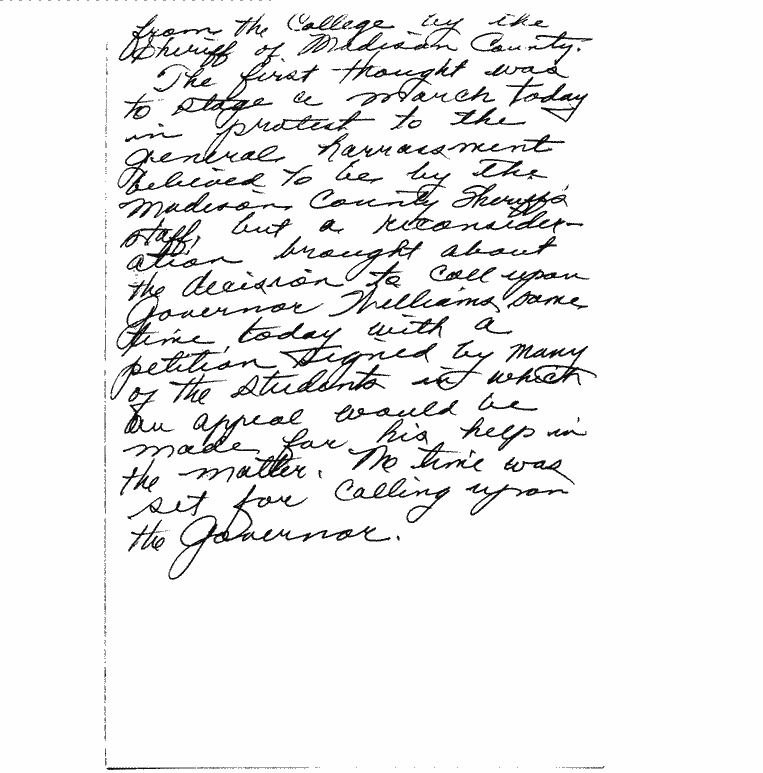 from the College by the
Sheriff of Madison County.
The first thought was
to stage a march today
in protest to the
general harrassment
believed to be by the
Madison County Sheriff's
staff, but a reconsider-
ation brought about
the decision to call upon
Governor Williams some
time today with a
petition signed by many
of the students in which
an appeal would be
made for his help in
the matter. No time was
set for calling upon
the Governor.